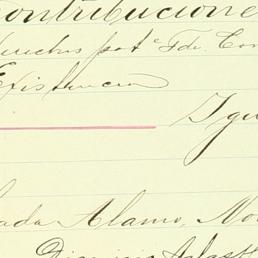 contribucione
derechos patᵉ Fdˡ Con
Existencia
Igu
ada Alamo, No